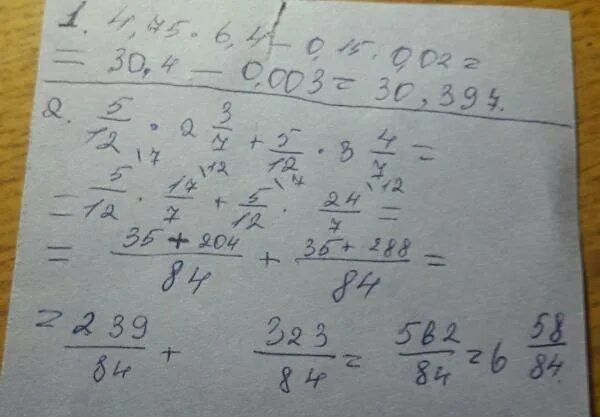 1. 4,75 · 6,4 - 0,15 · 0,02 =
= 30,4 - 0,003 = 30,397.
2. 5/12 · 2 3/7 + 5/12 · 3 4/7 =
= 5/12 \7 · 17/7 \12 + 5/12 \7 · 24/7 \12 =
= 35 + 204/84 + 35 + 288/84 =
= 239/84 + 323/84 = 562/84 = 6 58/84